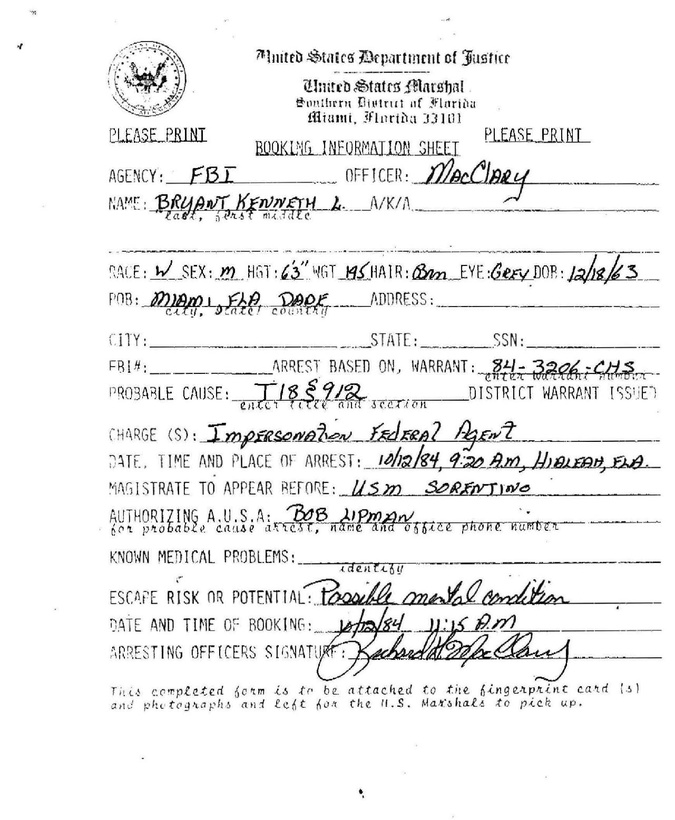 United States Department of Justice
United States Marshal
Southern District of Florida
Miami, Florida 33101
PLEASE PRINT PLEASE PRINT
BOOKING INFORMATION SHEET
AGENCY: FBI OFFICER: MacClary
NAME: BRYANT KENNETH L. A/K/A
last, first middle
RACE: W SEX: M HGT: 6'3" WGT 195 HAIR: Brn EYE: Grey DOB: 12/18/63
POB: MIAMI, FLA DADE ADDRESS:
city, state, country
CITY: STATE: SSN:
FBI#: ARREST BASED ON, WARRANT: 84-3206-CHS
enter warrant number
PROBABLE CAUSE: T18 § 912 DISTRICT WARRANT ISSUED
enter title and section
CHARGE (S): Impersonation Federal Agent
DATE, TIME AND PLACE OF ARREST: 10/12/84, 9:20 A.M, HIALEAH, FLA.
MAGISTRATE TO APPEAR BEFORE: USM SORENTINO
AUTHORIZING A.U.S.A: BOB LIPMAN
for probable cause arrest, name and office phone number
KNOWN MEDICAL PROBLEMS:
identify
ESCAPE RISK OR POTENTIAL: Possible mental condition
DATE AND TIME OF BOOKING: 10/12/84 11:15 A.M
ARRESTING OFFICERS SIGNATURE: Richard H MacClary
This completed form is to be attached to the fingerprint card (s)
and photographs and left for the U.S. Marshals to pick up.